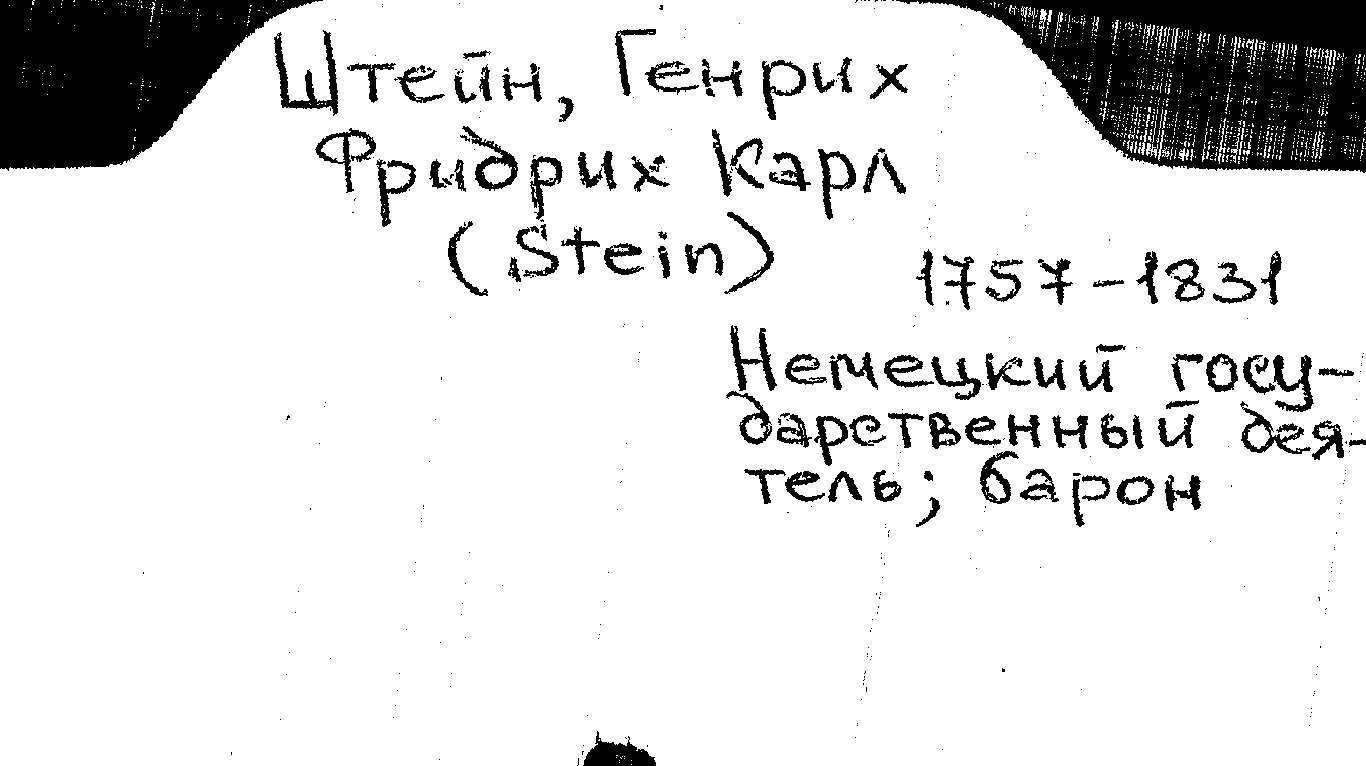 Штейн, Генрих
Фридрих Карл
(Stein)
1757-1831
Немецкий госу-
дарственный дея-
тель; барон